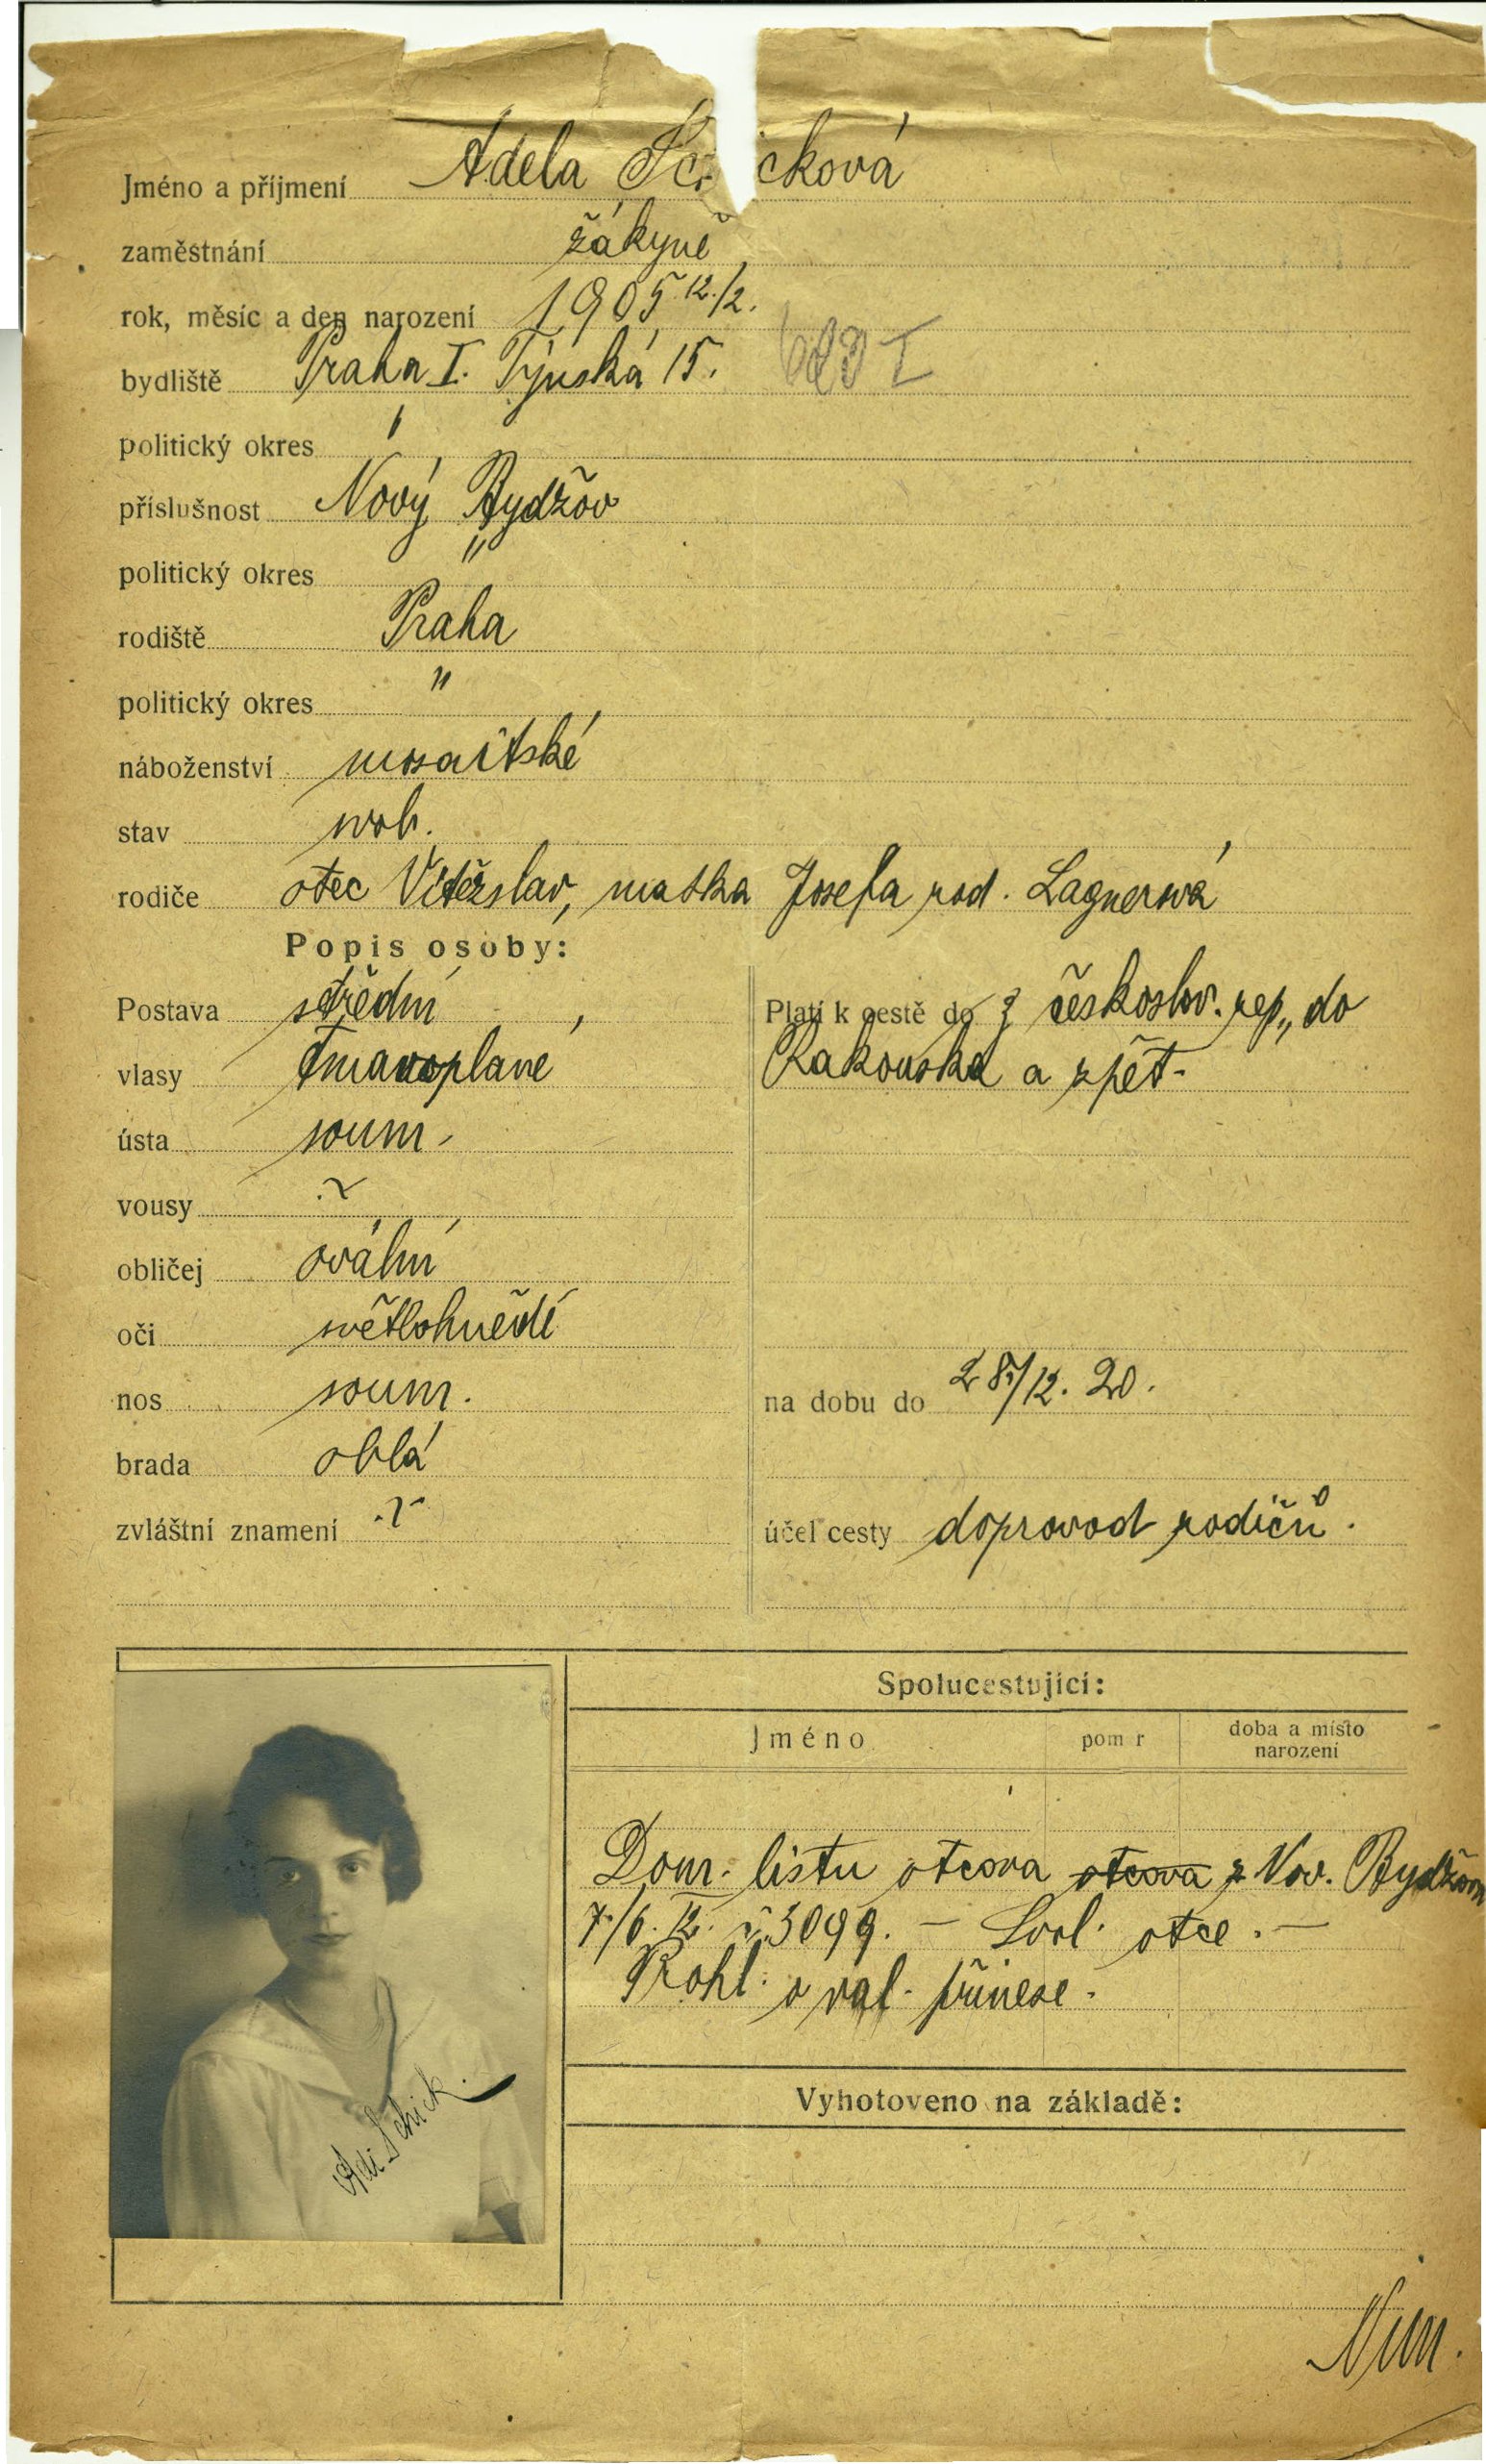 Jméno a příjmení Adela Sch cková
zaměstnání žákyně
rok, měsíc a den narození 1905 12./2.
bydliště Praha I. Týnská 15.
politický okres
příslušnost Nový Bydžov
politický okres "
rodiště Praha
politický okres "
náboženství mosaitské
stav svob.
rodiče otec Vítězslav, matka Josefa rod. Lagnerová
Popis osoby:
Postava střední
vlasy tmavoplavé
ústa soum.
vousy
obličej ovální
oči světlohnědé
nos soum.
brada oblá
zvláštní znamení
Platí k cestě do z českoslov. rep., do
Rakouska a zpět.
na dobu do 28/12. 20.
účel cesty doprovod rodičů.
Adi Schick.
Spolucestující:
Jméno pom r doba a místo
narození
Dom. listu otcova otcova z Nov. Bydžova
7./6. 12. č. 3099. — Svol. otce. —
Prohl. o val. přinese.
Vyhotoveno na základě: